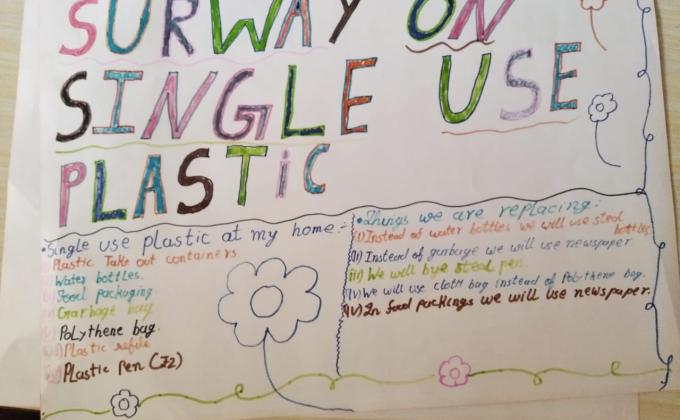 SURWAY ON
SINGLE USE
PLASTIC
• Single use plastic at my home :-
Plastic Take out containers
Water bottles.
Food packaging
Garbage bag
Polythene bag.
Plastic refile
Plastic pen (72)
• Things we are replacing:
(I) Instead of water bottles we will use steel
bottles
(II) Instead of garbage we will use newspaper
(III) We will bye steal pen.
(IV) We will use cloth bag instead of Polythene bag.
(IV) In food packings we will use newspaper.